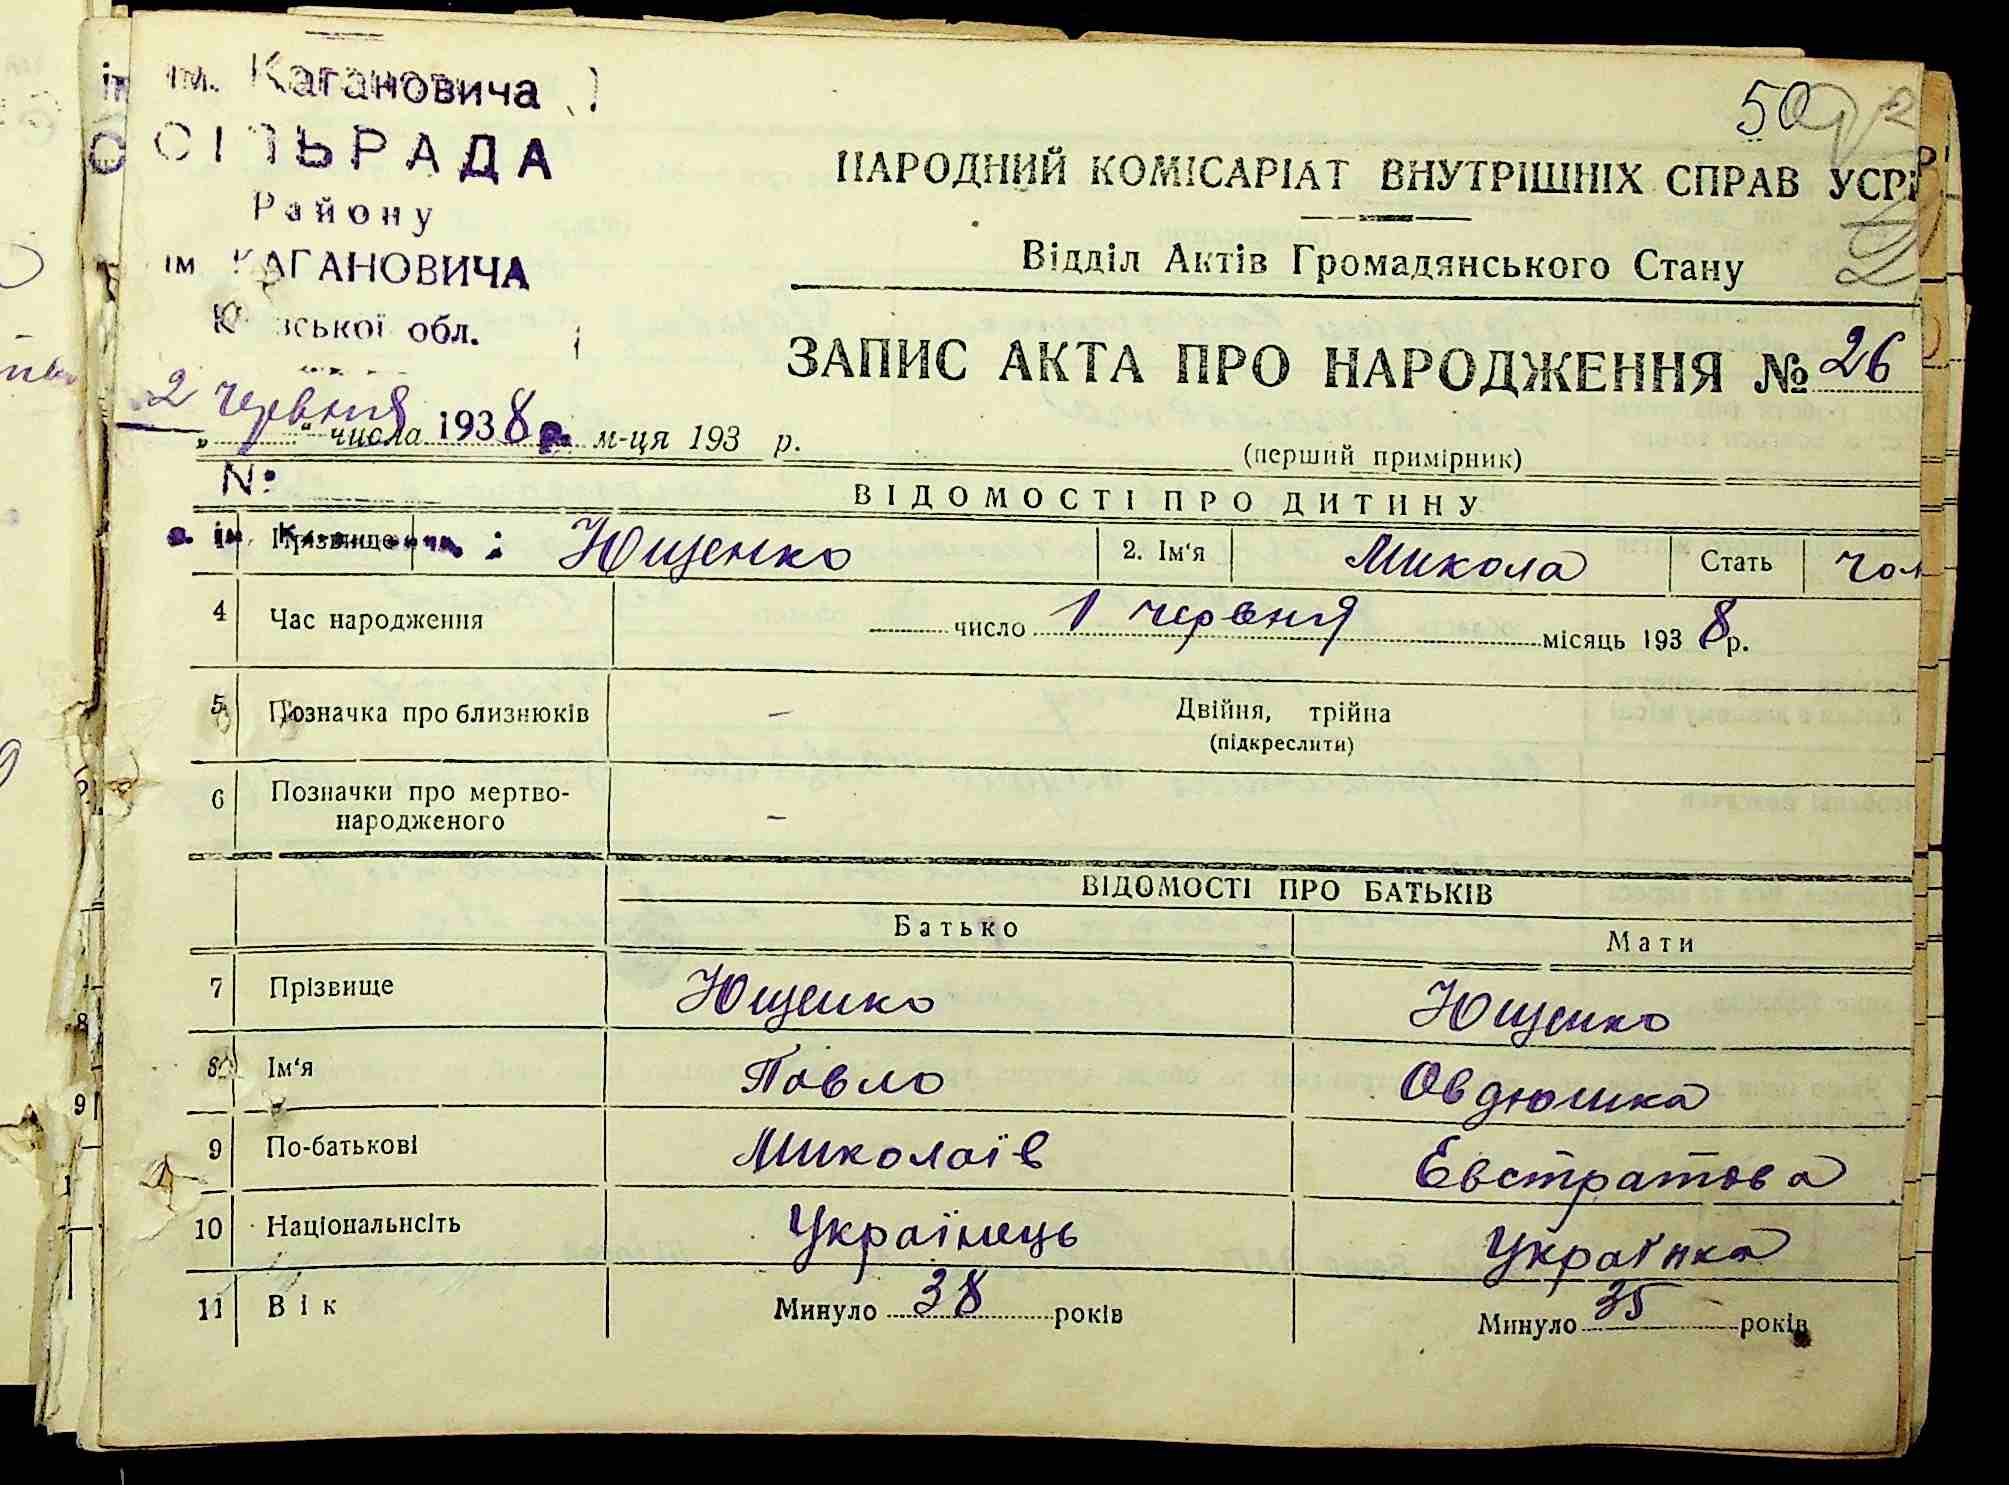 ім. Кагановича
СІЛЬРАДА
Району
ім КАГАНОВИЧА
Київської обл.
50
НАРОДНИЙ КОМІСАРІАТ ВНУТРІШНІХ СПРАВ УСРР
Відділ Актів Громадянського Стану
ЗАПИС АКТА ПРО НАРОДЖЕННЯ № 26
2 червня 1938 р.
„ “ числа м-ця 193 р.
(перший примірник)
№
ВІДОМОСТІ ПРО ДИТИНУ
1 Прізвище Ющенко 2. Ім‘я Микола Стать чол
4 Час народження число 1 червня місяць 1938 р.
5 Позначка про близнюків – Двійня, трійна
(підкреслити)
6 Позначки про мертво-
народженого –
ВІДОМОСТІ ПРО БАТЬКІВ
Батько Мати
7 Прізвище Ющенко Ющенко
8 Ім‘я Павло Овдюшка
9 По-батькові Миколаїв Евстратова
10 Національнсіть Українець Українка
11 Вік Минуло 38 років Минуло 35 років